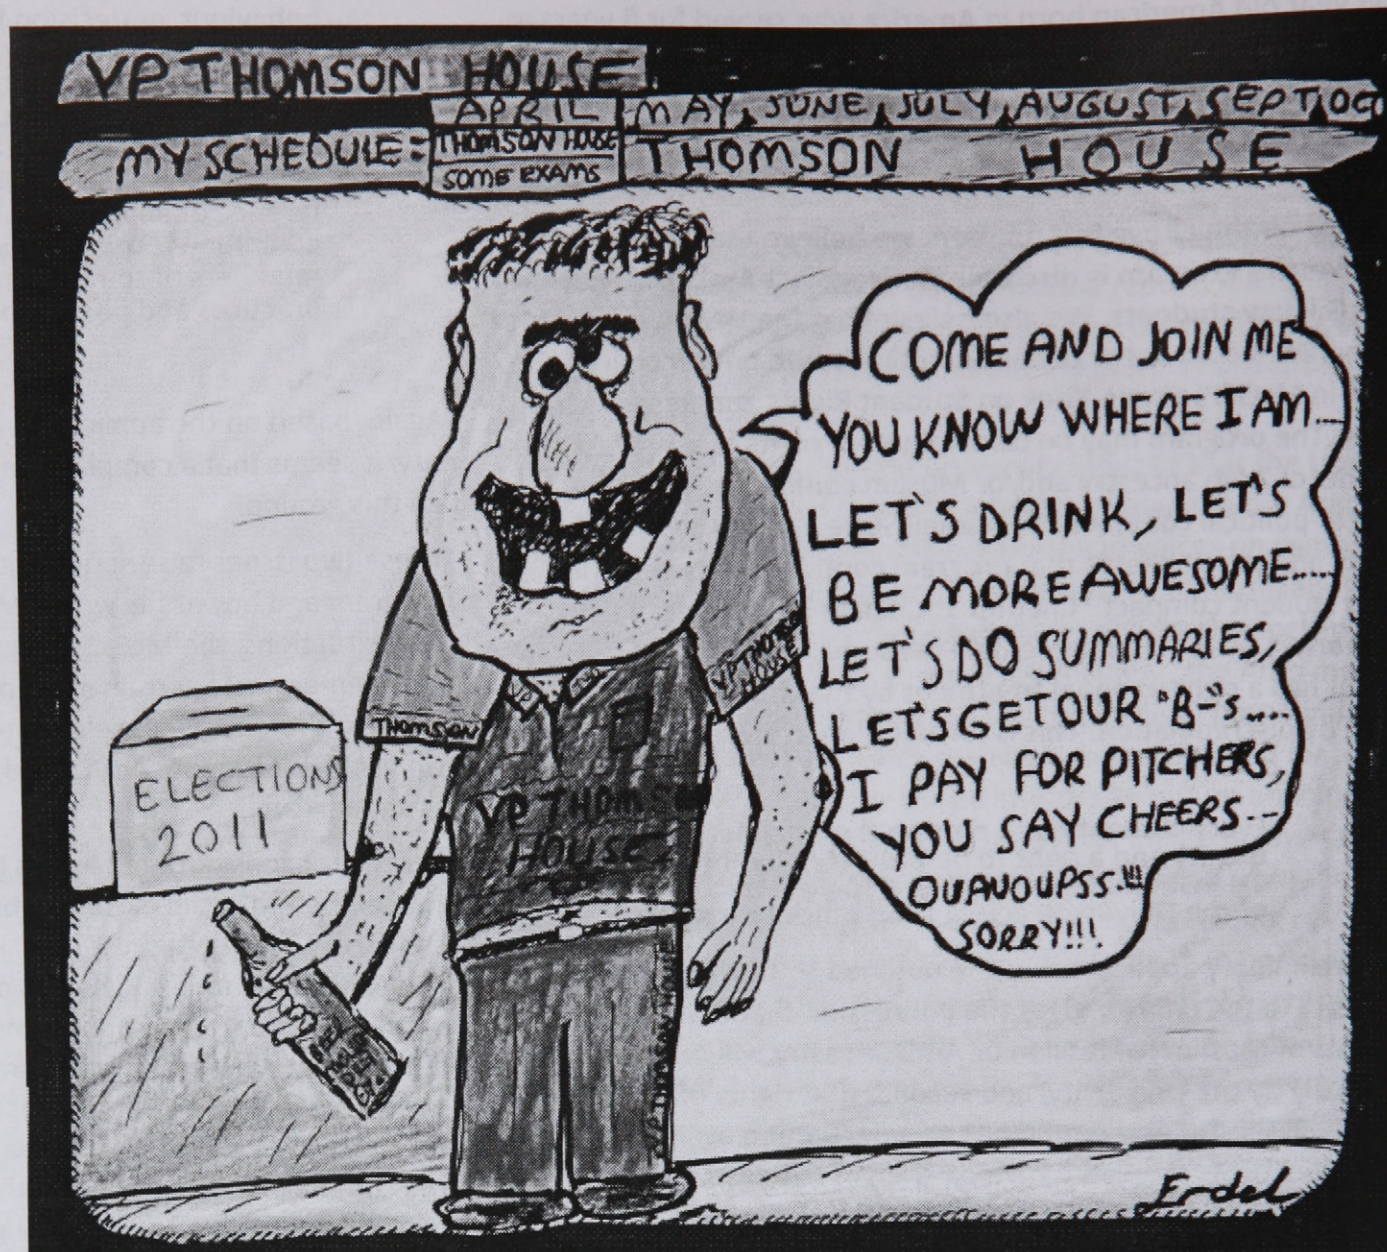 VP THOMSON HOUSE
APRIL
MAY, JUNE, JULY, AUGUST, SEPT, OC
MY SCHEDULE:
THOMSON HOUSE
SOME EXAMS
THOMSON HOUSE
COME AND JOIN ME
YOU KNOW WHERE I AM...
LET'S DRINK, LET'S
BE MORE AWESOME.....
LET'S DO SUMMARIES,
LET'S GET OUR "B-"s....
I PAY FOR PITCHERS,
YOU SAY CHEERS...
OUAVOUPSS.!!!
SORRY!!!.
VP THOMSO
HOUSE
VP
THOMSON
ELECTIONS
2011
VP THOMSON
HOUSE
VP THOMSON HOUSE
Erdel